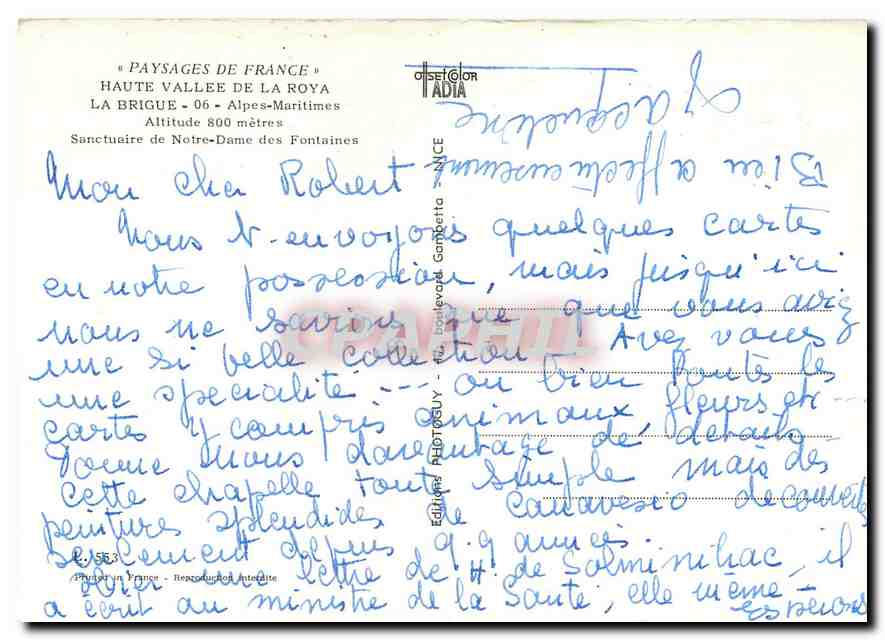 « PAYSAGES DE FRANCE »
HAUTE VALLEE DE LA ROYA
LA BRIGUE - 06 - Alpes-Maritimes
Altitude 800 mètres
Sanctuaire de Notre-Dame des Fontaines
offset COLOR
ADIA
Editions PHOTOGUY - boulevard Gambetta - NICE
CPARAMA
Mon cher Robert
Nous t-envoyons quelques cartes
en notre possession, mais jusqu'ici
nous ne savions que que vous aviez
une si belle collection Avez vous
une specialité --- ou bien toutes les
cartes y compris animaux, fleurs etc ---
Donne nous davantage de details
Cette chapelle toute simple mais des
peintures splendides de Canavesio decouvertes
seulement depuis q.q annees.
lettre de H. de Solminihac, il
a écrit au ministre de la Santé, elle même
Espérons
Bien affectueusement
Jacqueline
553
Printed in France - Reproduction interdite